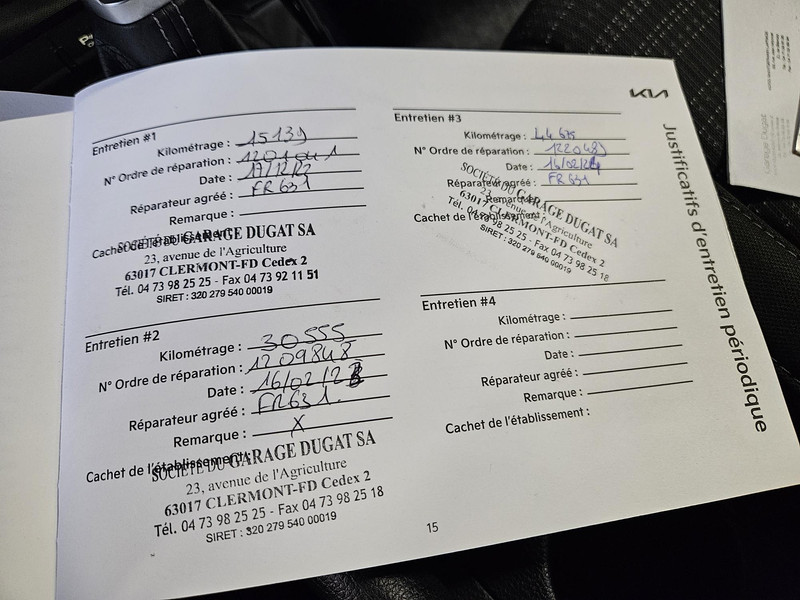 KIA
Justificatifs d'entretien périodique
Entretien #1
Kilométrage : 15139
N° Ordre de réparation :
Date : 17/12/22
Réparateur agréé : FR 631
Remarque :
Cachet de l'établissement :
SOCIÉTÉ DU GARAGE DUGAT SA
23, avenue de l'Agriculture
63017 CLERMONT-FD Cedex 2
Tél. 04 73 98 25 25 - Fax 04 73 92 11 51
SIRET : 320 279 540 00019
Entretien #2
Kilométrage : 30555
N° Ordre de réparation : 1209848
Date : 16/02/23
Réparateur agréé : FR631.
Remarque : X
Cachet de l'établissement :
SOCIÉTÉ DU GARAGE DUGAT SA
23, avenue de l'Agriculture
63017 CLERMONT-FD Cedex 2
Tél. 04 73 98 25 25 - Fax 04 73 98 25 18
SIRET : 320 279 540 00019
Entretien #3
Kilométrage : 44 675
N° Ordre de réparation :
Date : 16/02/24
Réparateur agréé : FR 631
Remarque :
Cachet de l'établissement :
SOCIÉTÉ DU GARAGE DUGAT SA
23, avenue de l'Agriculture
63017 CLERMONT-FD Cedex 2
Tél. 04 73 98 25 25 - Fax 04 73 98 25 18
SIRET : 320 279 540 00019
Entretien #4
Kilométrage :
N° Ordre de réparation :
Date :
Réparateur agréé :
Remarque :
Cachet de l'établissement :
15